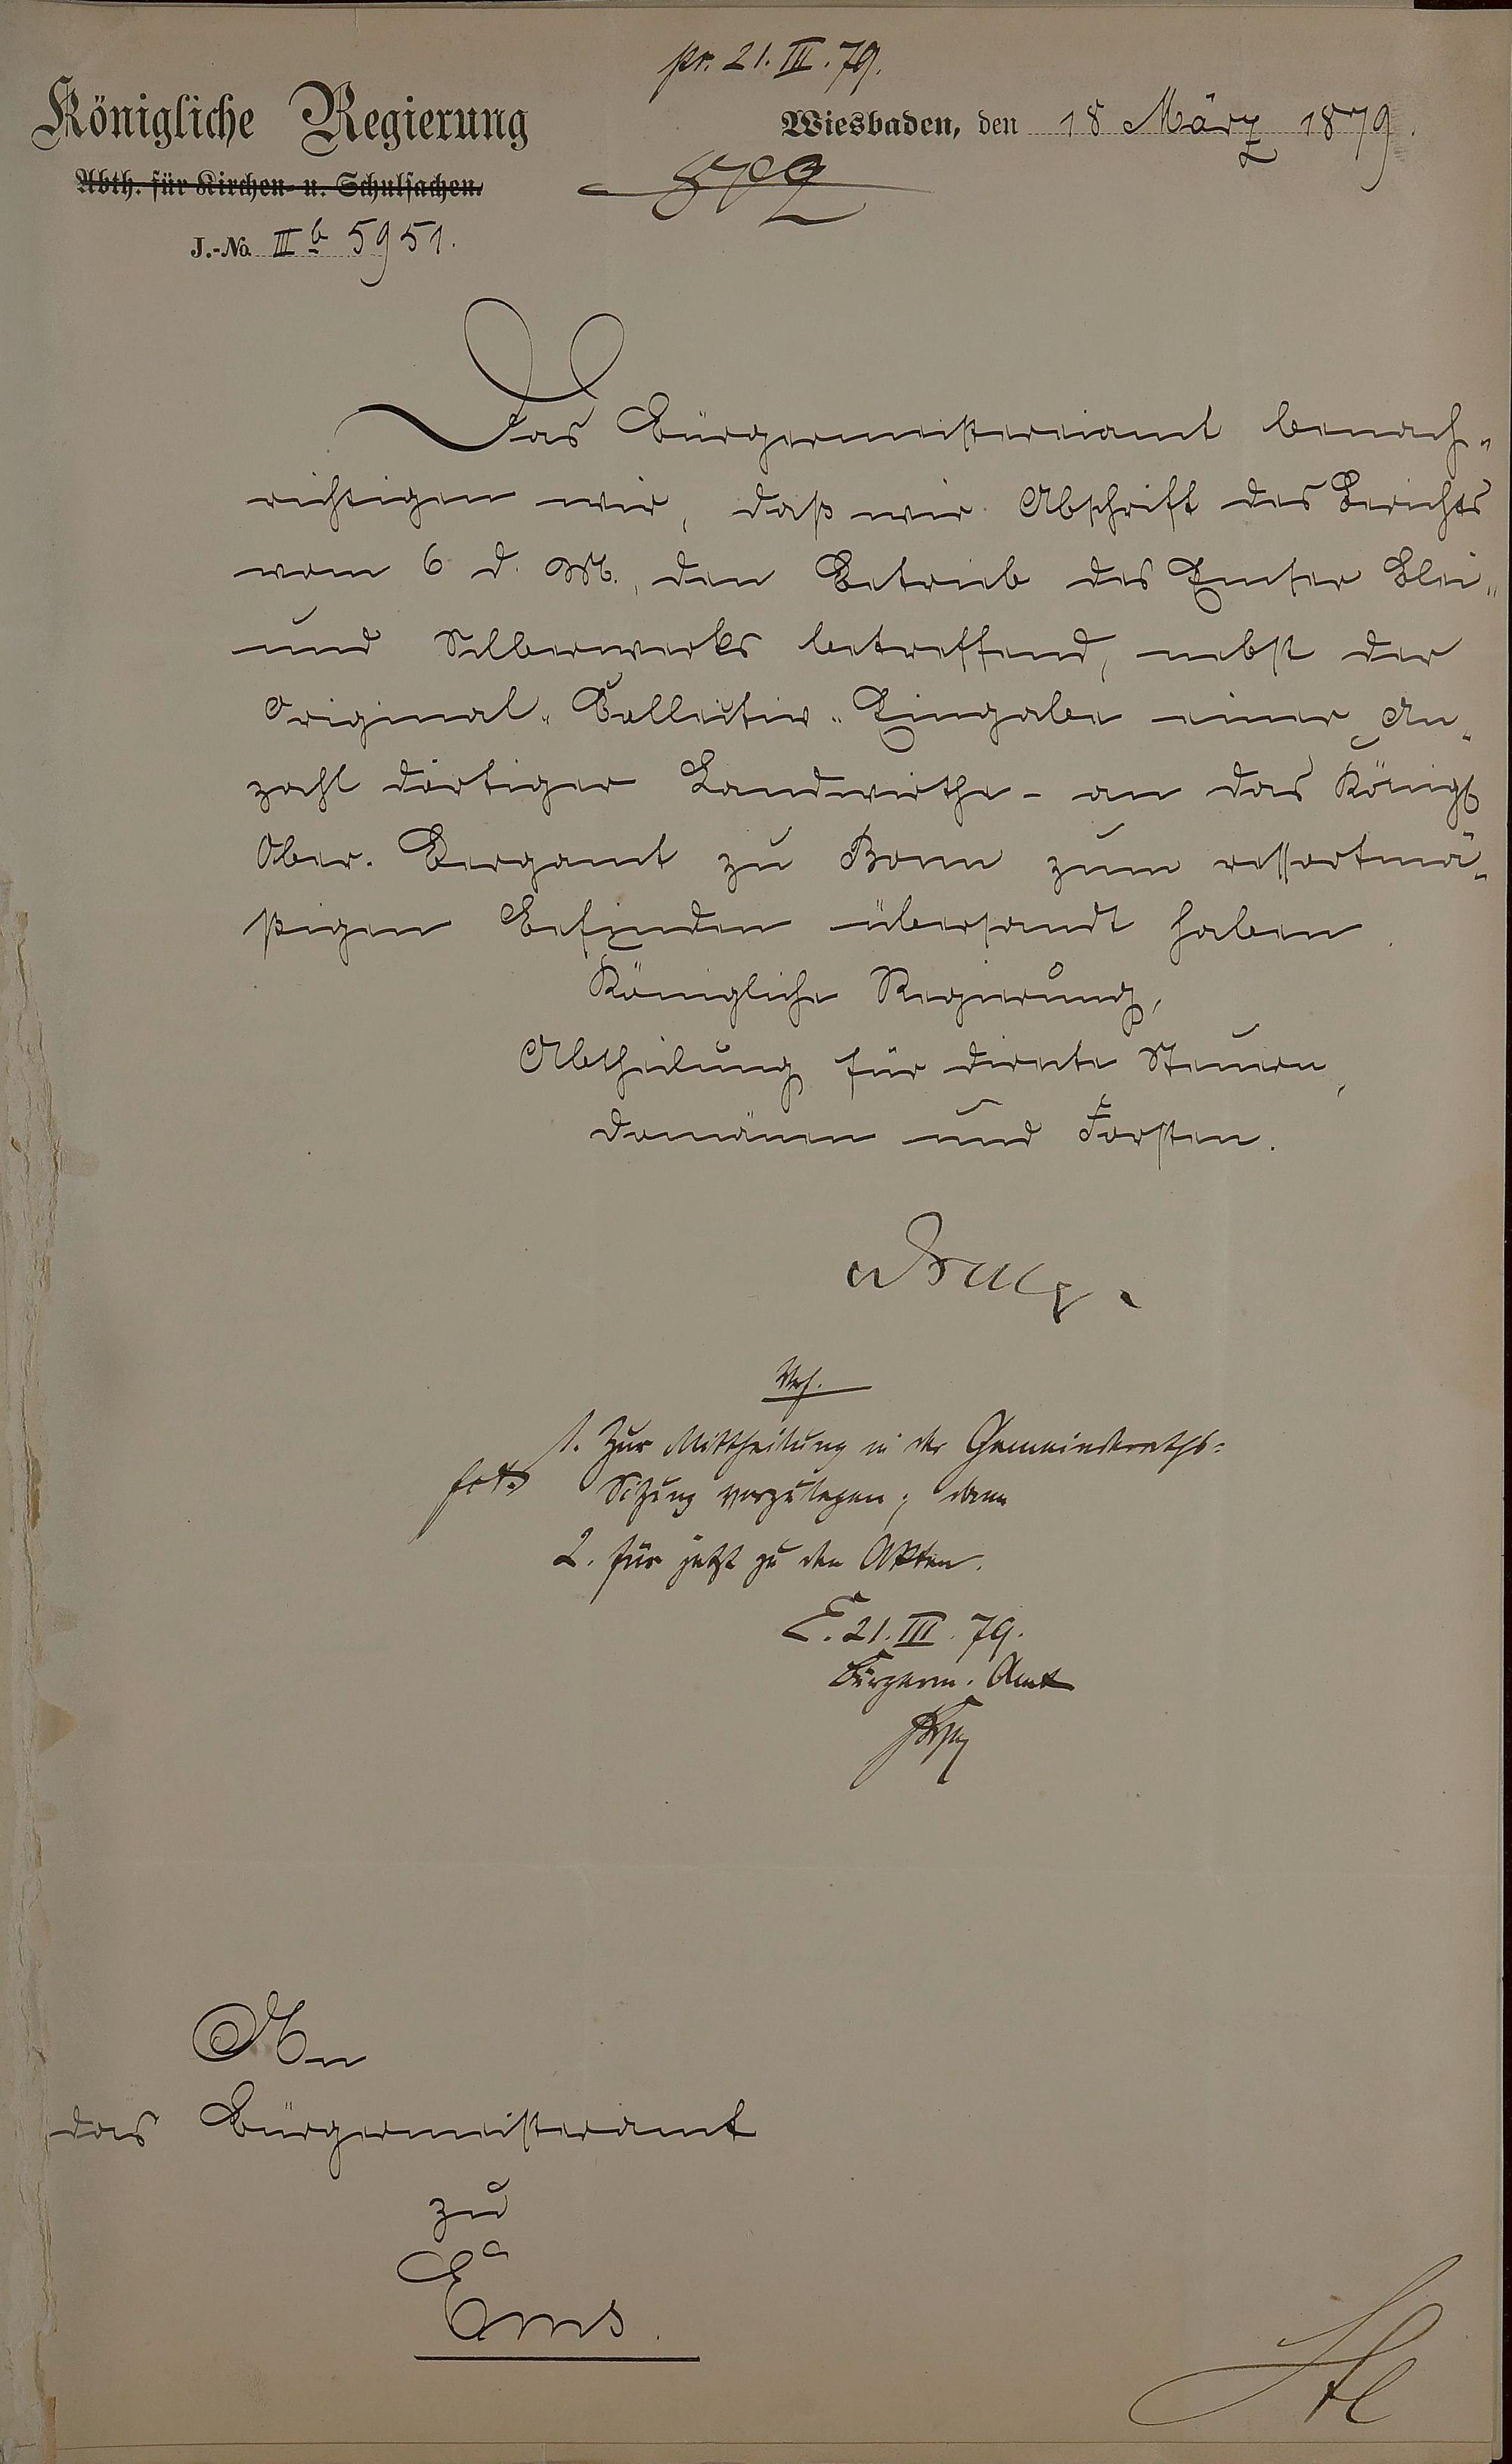 pr. 21. III. 79.
Königliche Regierung
Wiesbaden, den 18 März 1879.
Abth. für Kirchen- u. Schulsachen.
J.-No. III b 5951.
Das Bürgermeistereiamt benach-
richtigen wir, daß wir Abschrift des Berichts
vom 6 d. M., den Betrieb des Emser Blei-
und Silberwerks betreffend, nebst der
Original-Collectiv-Eingabe einer An-
zahl dortiger Landwirthe - an das Königl
Ober-Bergamt zu Bonn zum ressortmä-
ßigen Befinden übersandt haben.
Königliche Regierung,
Abtheilung für directe Steuern,
Domänen und Forsten.
Vrf.
1. Zur Mittheilung in der Gemeinderaths-
Sitzung vorzulegen; dann
2. für jetzt zu den Akten.
E. 21. III. 79.
Bürgerm. Amt
An
das Bürgermeisteramt
zu
Ems.